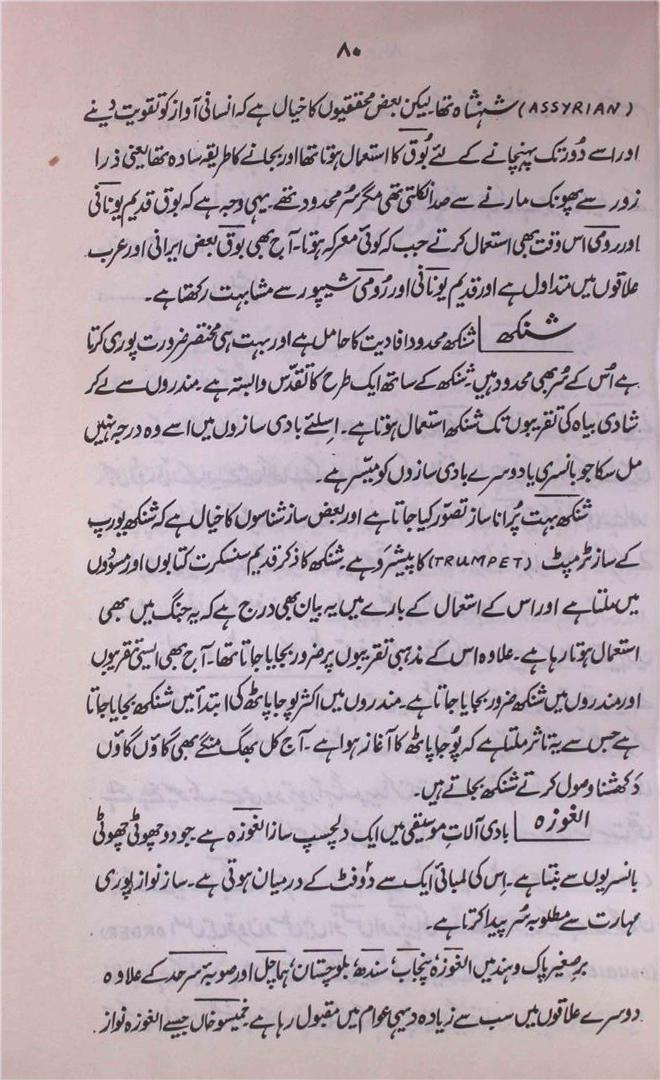 ۸۰
(ASSYRIAN) شہنشاہ تھا۔ لیکن بعض محققیوں کا خیال ہے کہ انسانی آواز کو تقویت دینے
اور اسے دُور تک پہنچانے کے لئے بُوق کا استعمال ہوتا تھا اور بجانے کا طریقہ سادہ تھا یعنی ذرا
زور سے پھونک مارنے سے صدا نکلتی تھی مگر سُر محدود تھے۔ یہی وجہ ہے کہ بوق قدیم یونانی
اور رومی اس وقت بھی استعمال کرتے جب کہ کوئی معرکہ ہوتا۔ آج بھی بوق بعض ایرانی اور عرب
علاقوں میں متداول ہے اور قدیم یونانی اور رُومی شیپور سے مشابہت رکھتا ہے۔
شنکھ | شنکھ محدود افادیت کا حامل ہے اور بہت ہی مختصر ضرورت پوری کرتا
ہے اُس کے سُر بھی محدود ہیں۔ شنکھ کے ساتھ ایک طرح کا تقدّس وابستہ ہے۔ مندروں سے لے کر
شادی بیاہ کی تقریبوں تک شنکھ استعمال ہوتا ہے۔ اسلئے بادی سازوں میں اسے وہ درجہ نہیں
مل سکا جو بانسری یا دوسرے بادی سازوں کو میسّر ہے۔
شنکھ بہت پُرانا ساز تصوّر کیا جاتا ہے اور بعض ساز شناسوں کا خیال ہے کہ شنکھ یورپ
کے ساز ٹرمپٹ (TRUMPET) کا پیشرَو ہے۔ شنکھ کا ذکر قدیم سنسکرت کتابوں اور مسوّدوں
میں ملتا ہے اور اس کے استعمال کے بارے میں یہ بیان بھی درج ہے کہ یہ جنگ میں بھی
استعمال ہوتا رہا ہے۔ علاوہ اس کے مذہبی تقریبوں پر ضرور بجایا جاتا تھا۔ آج بھی ایسی تقریبوں
اور مندروں میں شنکھ ضرور بجایا جاتا ہے۔ مندروں میں اکثر پوجا پاٹھ کی ابتدأ میں شنکھ بجایا جاتا
ہے جس سے یہ تاثر ملتا ہے کہ پُوجا پاٹھ کا آغاز ہوا ہے۔ آج کل بھگ منگے بھی گاؤں گاؤں
دَکھشنا وصول کرتے شنکھ بجاتے ہیں۔
الغوزہ | بادی آلاتِ موسیقی میں ایک دلچسپ ساز الغوزہ ہے۔ جو دو چھوٹی چھوٹی
بانسریوں سے بنتا ہے۔ اِس کی لمبائی ایک سے دوُفٹ کے درمیان ہوتی ہے۔ ساز نواز پوری
مہارت سے مطلوبہ سُر پیدا کرتا ہے۔
برِصغیر پاک و ہند میں الغوزہ پنجاب، سندھ، بلوچستان، ہماچل اور صوبۂ سرحد کے علاوہ
دوسرے علاقوں میں سب سے زیادہ دیہی عوام میں مقبول رہا ہے۔ خمیسو خاں جیسے الغوزہ نواز